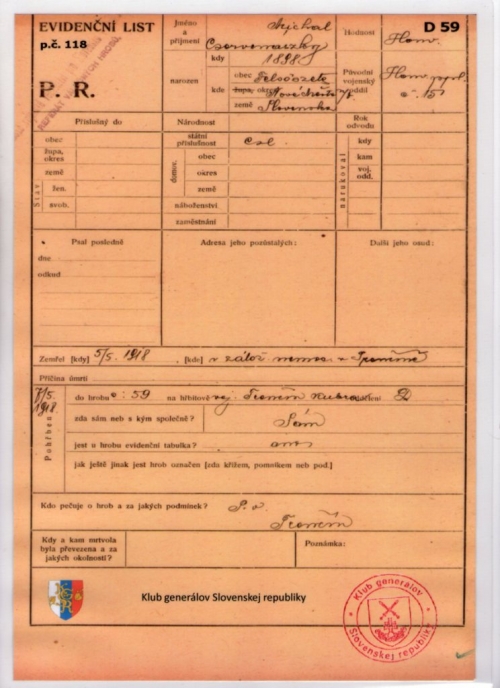 EVIDENČNÍ LIST
p.č. 118
P. R.
Jméno a příjmení
Michal
Hodnost
Honv.
D 59
kdy
1898
narozen
kde
obec
župa, okres
země
Slovensko
Původní vojenský oddíl
Honv.
15
Příslušný do
Národnost
Rok odvodu
Stav
obec
župa, okres
země
žen.
svob.
státní příslušnost
čsl
domov.
obec
okres
země
náboženství
zaměstnání
narukoval
kdy
kam
voj. odd.
Psal posledně
dne
odkud
Adresa jeho pozůstalých:
Další jeho osud:
Zemřel [kdy] 5/5. 1918 [kde] v zálož. nemoc. v Trenčíně
Příčina úmrtí
Pohřben
7/5. 1918.
do hrobu č: 59 na hřbitově voj. Trenčín oddělení D
zda sám neb s kým společně?
Sám
jest o hrobu evidenční tabulka?
ano
jak ještě jinak jest hrob označen [zdu křížem, pomníkem neb pod.]
Kdo pečuje o hrob a za jakých podmínek?
Trenčín
Kdy a kam mrtvola byla převezena a za jakých okolností?
Poznámka:
Klub generálov Slovenskej republiky
Klub generálov
Slovenskej republiky